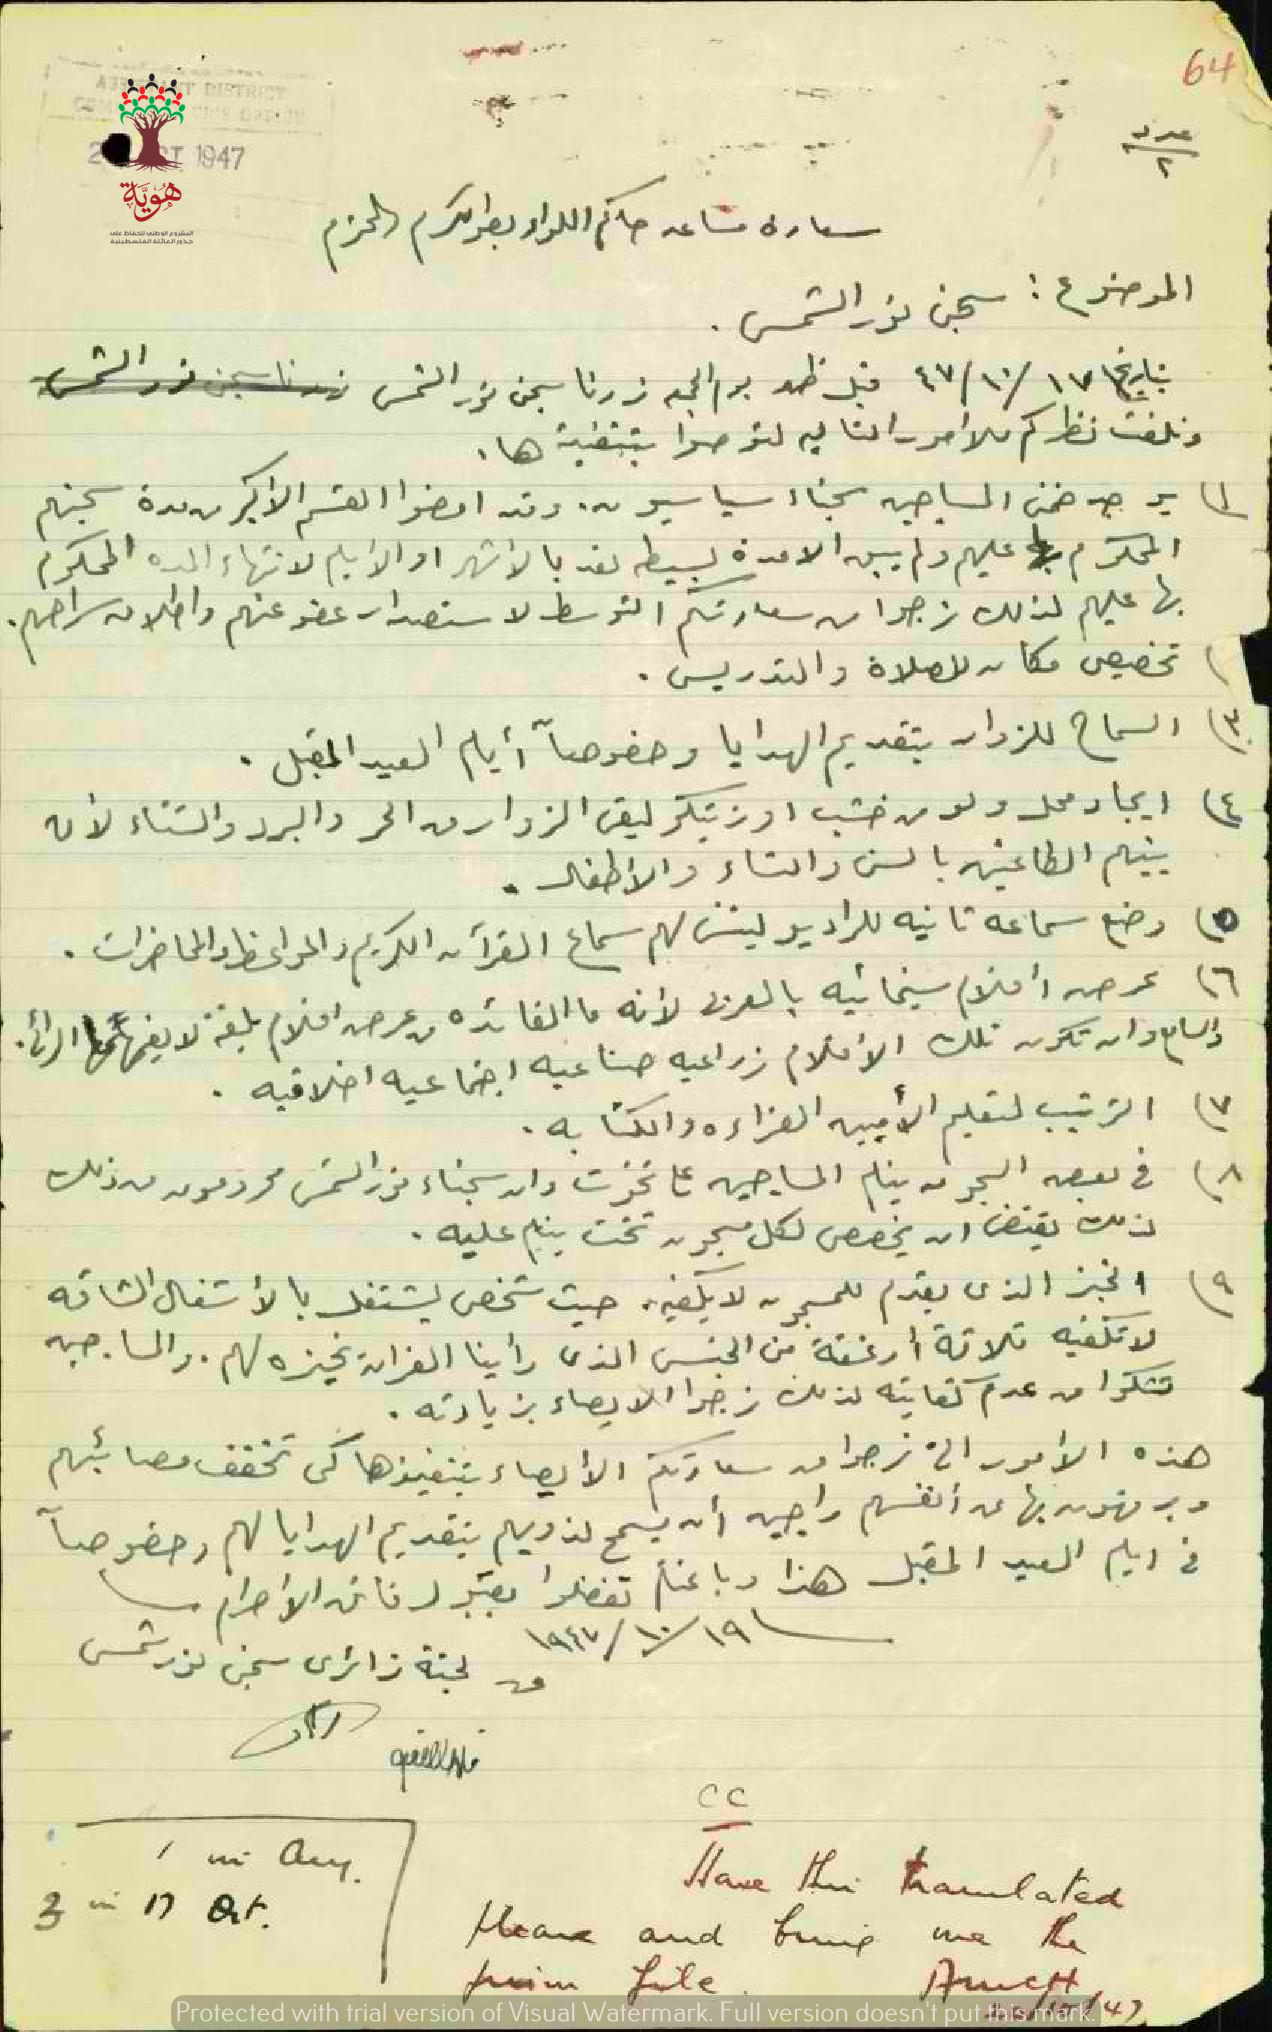 64
ASSISTANT DISTRICT
COMMISSIONER'S OFFICE
2 OCT 1947
هُوِيَّة
المشروع الوطني للحفاظ على
جذور العائلة الفلسطينية
عدد
٢
سعادة مساعد حاكم اللواء بطولكرم المحترم
الموضوع : سجن نور الشمس .
بتاريخ ١٧/١٠/٤٧ قبل ظهر يوم الجمعه زرنا سجن نور الشمس زرنا سجن نور الشمس
ونلفت نظركم للامور التاليه لتوصوا بتنفيذها .
١) يوجد ضمن المساجين سجناء سياسيون . وقد امضوا القسم الأكبر من مدة سجنهم
المحكوم عليهم ولم يبق الا مدة بسيطه تعد بالأشهر او الأيام لانتهاء المده المحكوم
بها عليهم لذلك نرجوا من سعادتكم التوسط لاستصدار عفو عنهم واطلاق سراحهم .
) تخصيص مكان للصلاة والتدريس .
٣) السماح للزوار بتقديم الهدايا وخصوصاً أيام العيد المقبل .
٤) ايجاد محل ولو من خشب او زينكو ليقي الزوار من الحر والبرد والشتاء لأن
بينهم الطاعنين بالسن والنساء والأطفال .
٥) وضع سماعه ثانيه للراديو ليتسنى لهم سماع القرآن الكريم والمواعظ والمحاضرات .
٦) عرض أفلام سينمائيه بالعربي لأنه ما الفائده من عرض افلام بلغة لا يفهمها الرائي
والسامع وان تكون تلك الأفلام زراعيه صناعيه اجتماعيه اخلاقيه .
٧) الترتيب لتعليم الأميين القراءه والكتابه .
٨) في بعض السجون ينام المساجين على تخوت وان سجناء نور الشمس محرومون من ذلك
لذلك يقتضي ان يخصص لكل مسجون تخت ينام عليه .
٩) الخبز الذي يقدم للمسجون لا يكفيه . حيث شخص يشتغل بالأشغال الشاقه
لا تكفيه ثلاثة أرغفة من الجنس الذي رأينا الفران يخبزه لهم . والمساجين
تشكوا من عدم كفايته لذلك نرجوا الايصاء بزيادته .
هذه الامور التي نرجوا من سعادتكم الأيصاء بتنفيذها كي تخفف مصائبهم
ويرفهون بها عن أنفسهم راجين أن يسمح لذويهم بتقديم الهدايا لهم وخصوصاً
في ايام العيد المقبل هذا وباختتام تفضلوا بقبول فائق الاحترام
١٩/١٠/١٩٤٧
من لجنة زائري سجن نور شمس
CC
Have this translated
please and bring me the
prison file.
/10/47
1 in Aug.
3 in 17 Oct.
Protected with trial version of Visual Watermark. Full version doesn't put this mark.